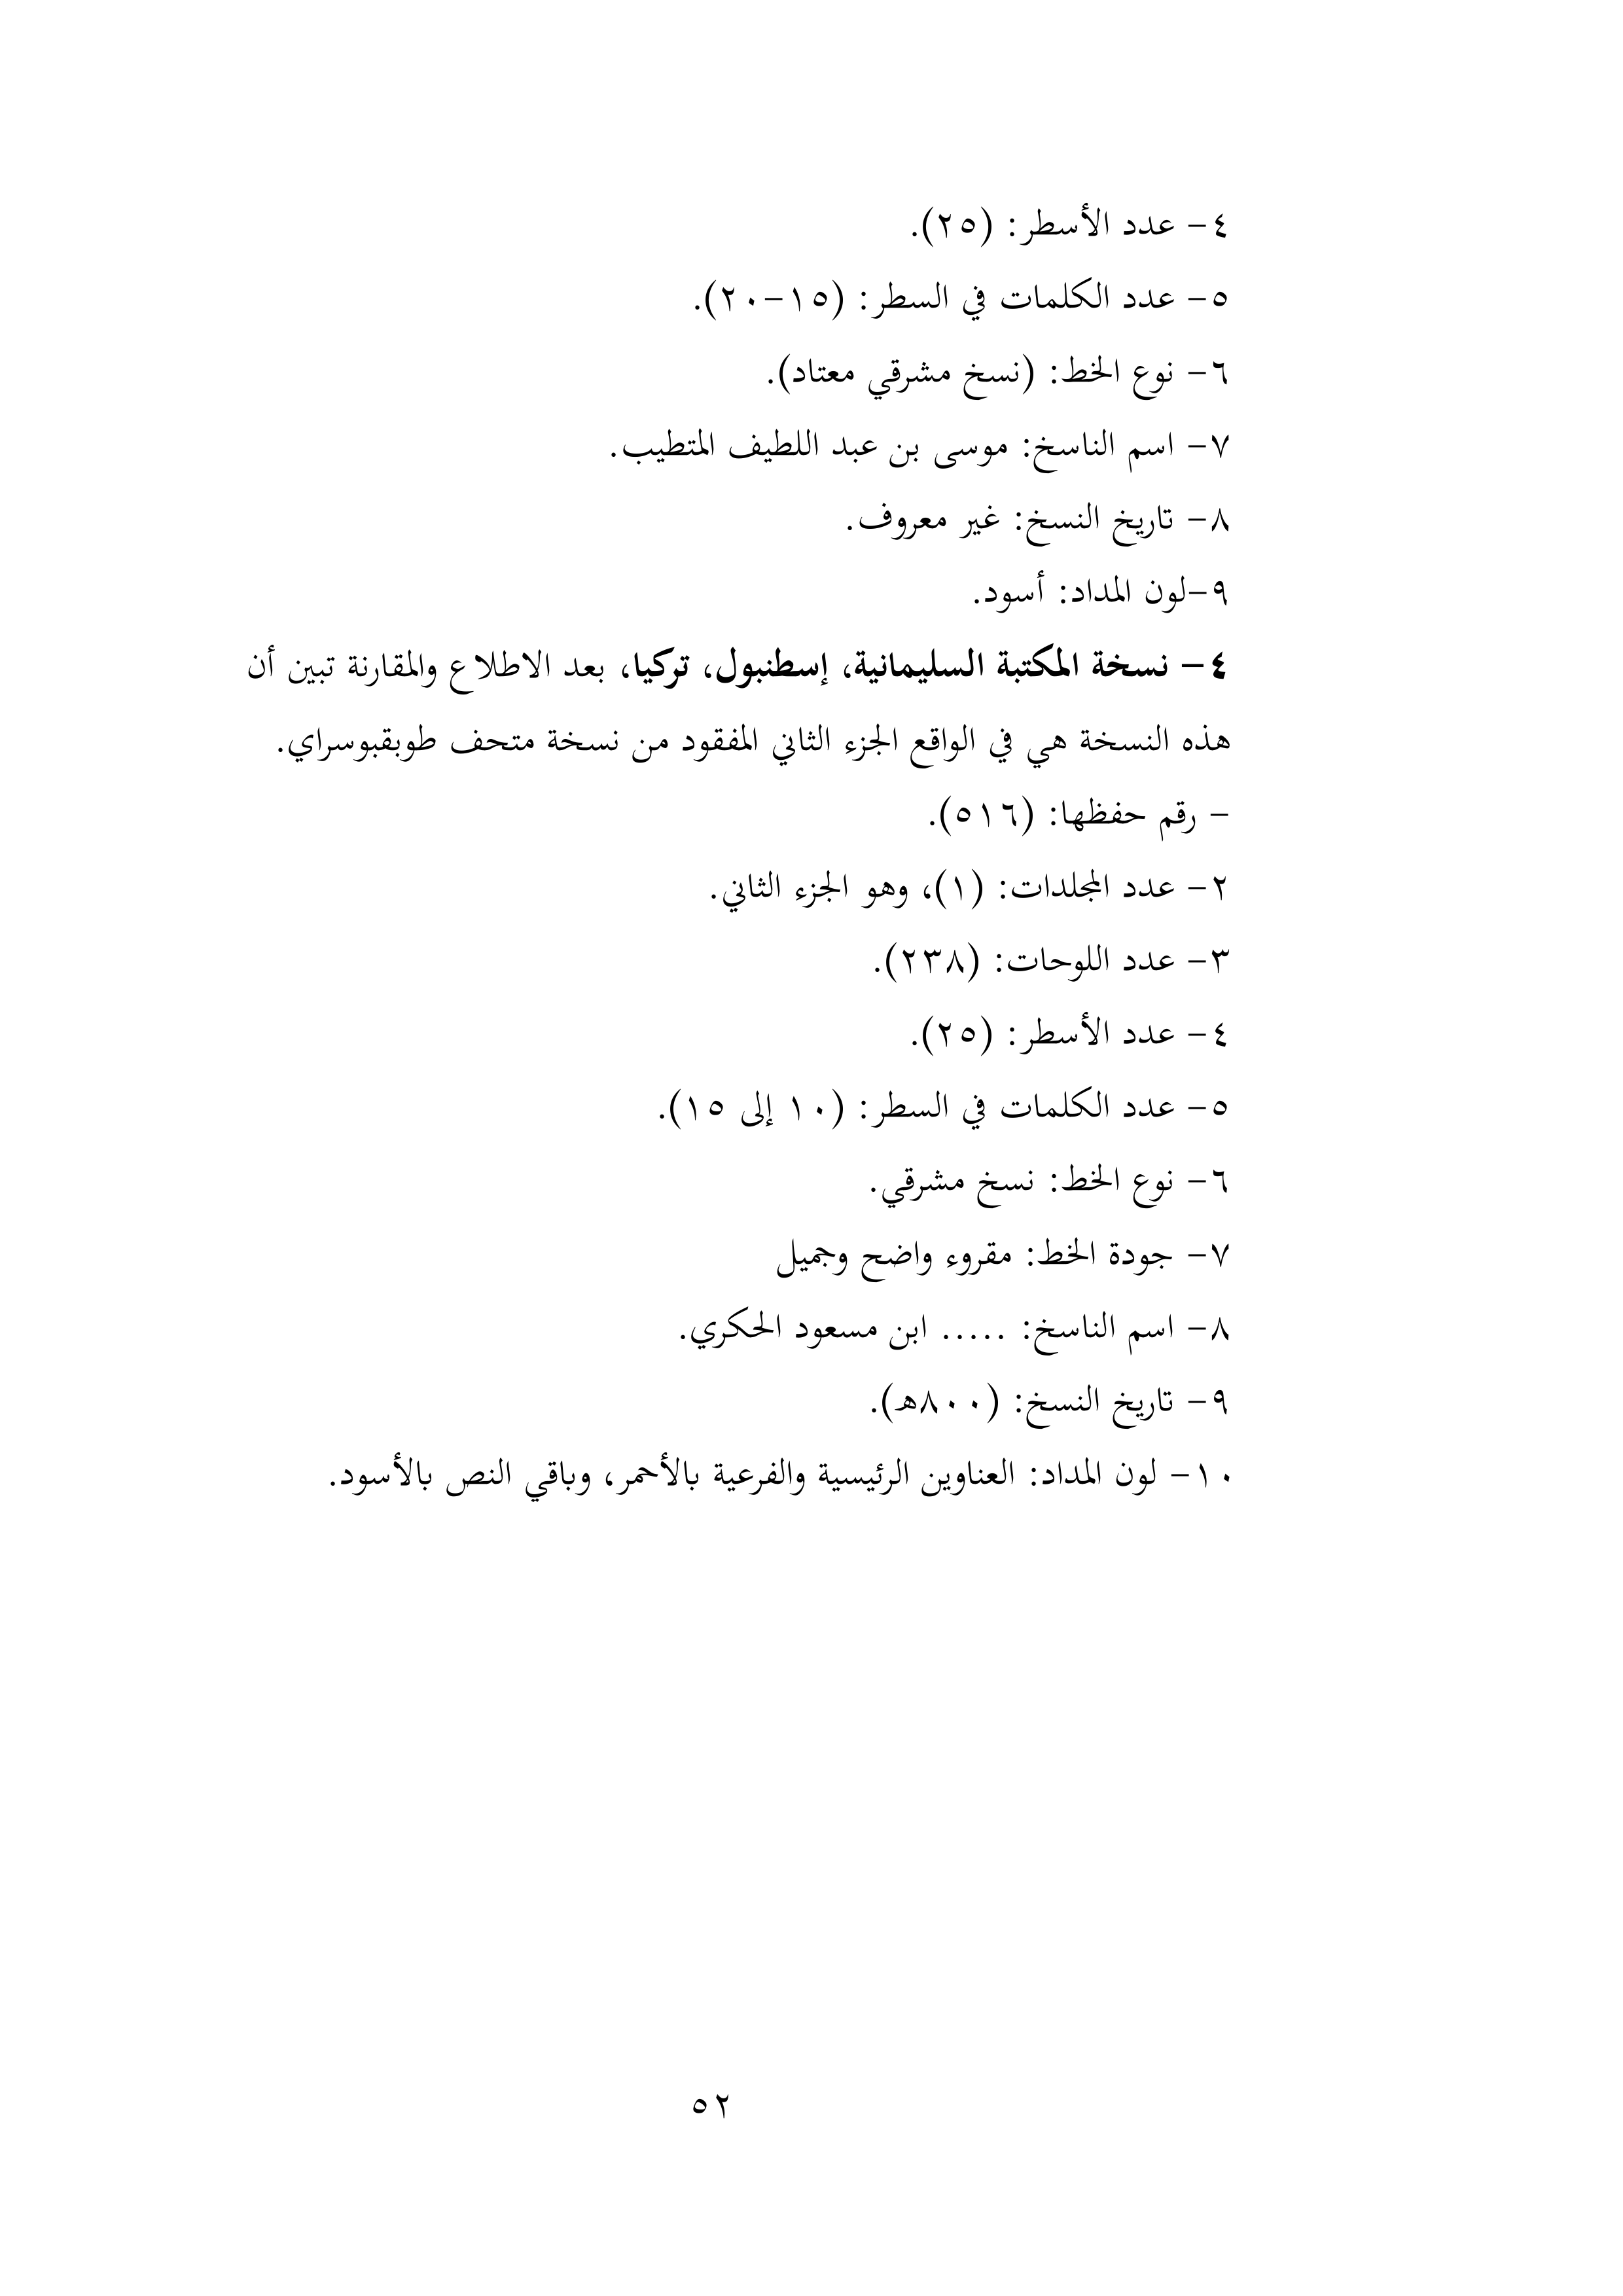 ٤- عدد الأسطر: (٢٥).
٥- عدد الكلمات في السطر: (١٥-٢٠).
٦- نوع الخط: (نسخ مشرقي معتاد).
٧- اسم الناسخ: موسى بن عبد اللطيف المتطيب.
٨- تاريخ النسخ: غير معروف.
٩-لون المداد: أسود.
٤- نسخة المكتبة السليمانية، إسطنبول، تركيا، بعد الاطلاع والمقارنة تبين أن
هذه النسخة هي في الواقع الجزء الثاني المفقود من نسخة متحف طوبقبوسراي.
- رقم حفظها: (٥١٦).
٢- عدد المجلدات: (١)، وهو الجزء الثاني.
٣- عدد اللوحات: (٢٣٨).
٤- عدد الأسطر: (٢٥).
٥- عدد الكلمات في السطر: (١٠ إلى ١٥).
٦- نوع الخط: نسخ مشرقي.
٧- جودة الخط: مقروء واضح وجميل
٨- اسم الناسخ: ..... ابن مسعود الحكري.
٩- تاريخ النسخ: (٨٠٠هـ).
١٠- لون المداد: العناوين الرئيسية والفرعية بالأحمر، وباقي النص بالأسود.
٥٢